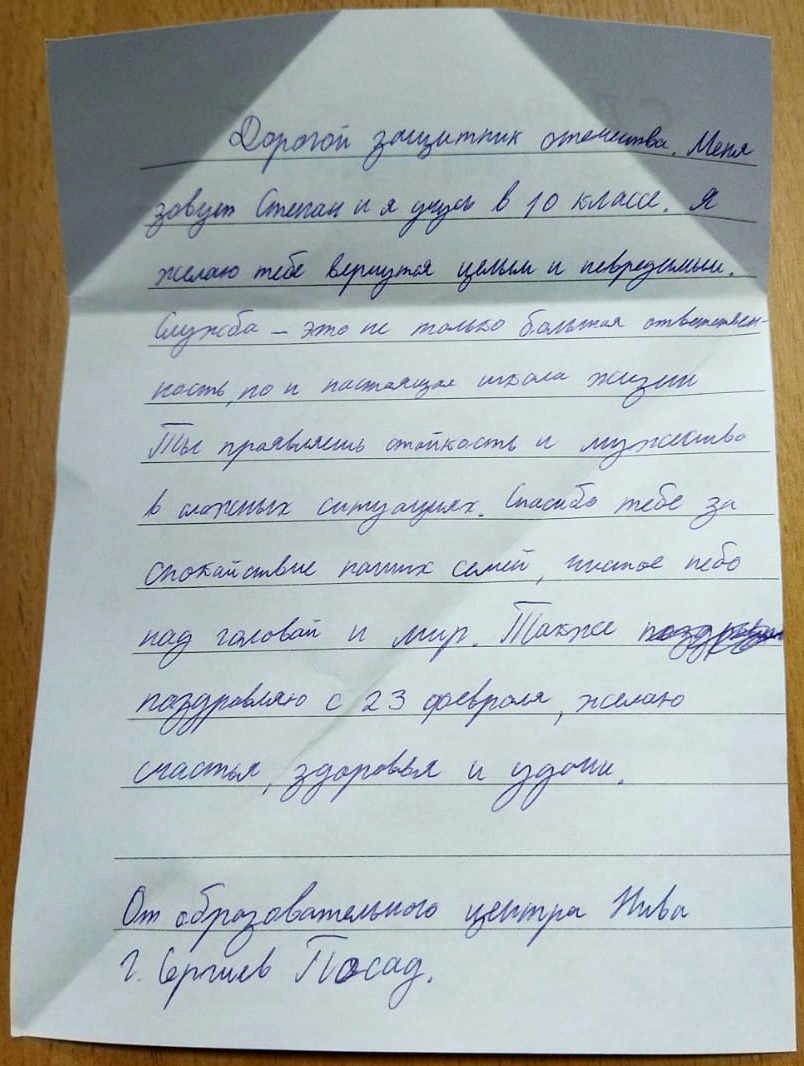 Дорогой защитник отечества. Меня
зовут Степан и я учусь в 10 классе. Я
желаю тебе вернутся целым и невредимым.
Служба – это не только большая ответствен-
ность, но и настоящая школа жизни
Ты проявляешь стойкость и мужество
в сложных ситуациях. Спасибо тебе за
спокойствие наших семей, чистое небо
над головой и мир. Также
поздравляю с 23 февраля, желаю
счастья, здоровья и удачи.
От образовательного центра Нива
г. Сергиев Посад.